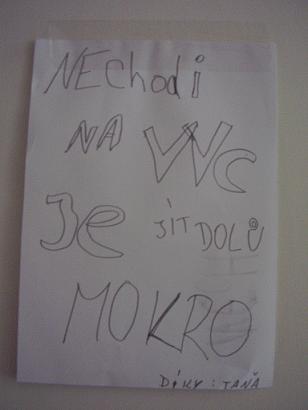 NEChodi
NA WC
Je JíT DOLŮ
MOKRO
Díky: TAŇÁ